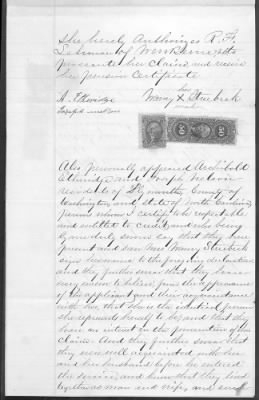 She hereby Authorizes R. F.
Lehman of New Berne to
prosecute her claim and receive
her pension Certificate
her
Mary X Strebeck
mark
50
Also personally appeared Archibald
Ethridge and Joseph
residents of Plymouth County of
Washington and state of North Carolina
persons whom I certify to be respectable
and entitled to credit, and who being
by me duly sworn say that they were
present and saw Mrs Mary Strebeck
sign her name to the foregoing declaration
and they further swear that they have
every reason to believe from the appearance
of the applicant and their acquaintance
with her that she is the identical person
she represents herself to be, and that they
have no interest in the prosecution of this
claim. And they further swear that
they were well acquainted with her
and her husband before he entered
the service, and know that they lived
together as man and wife, and